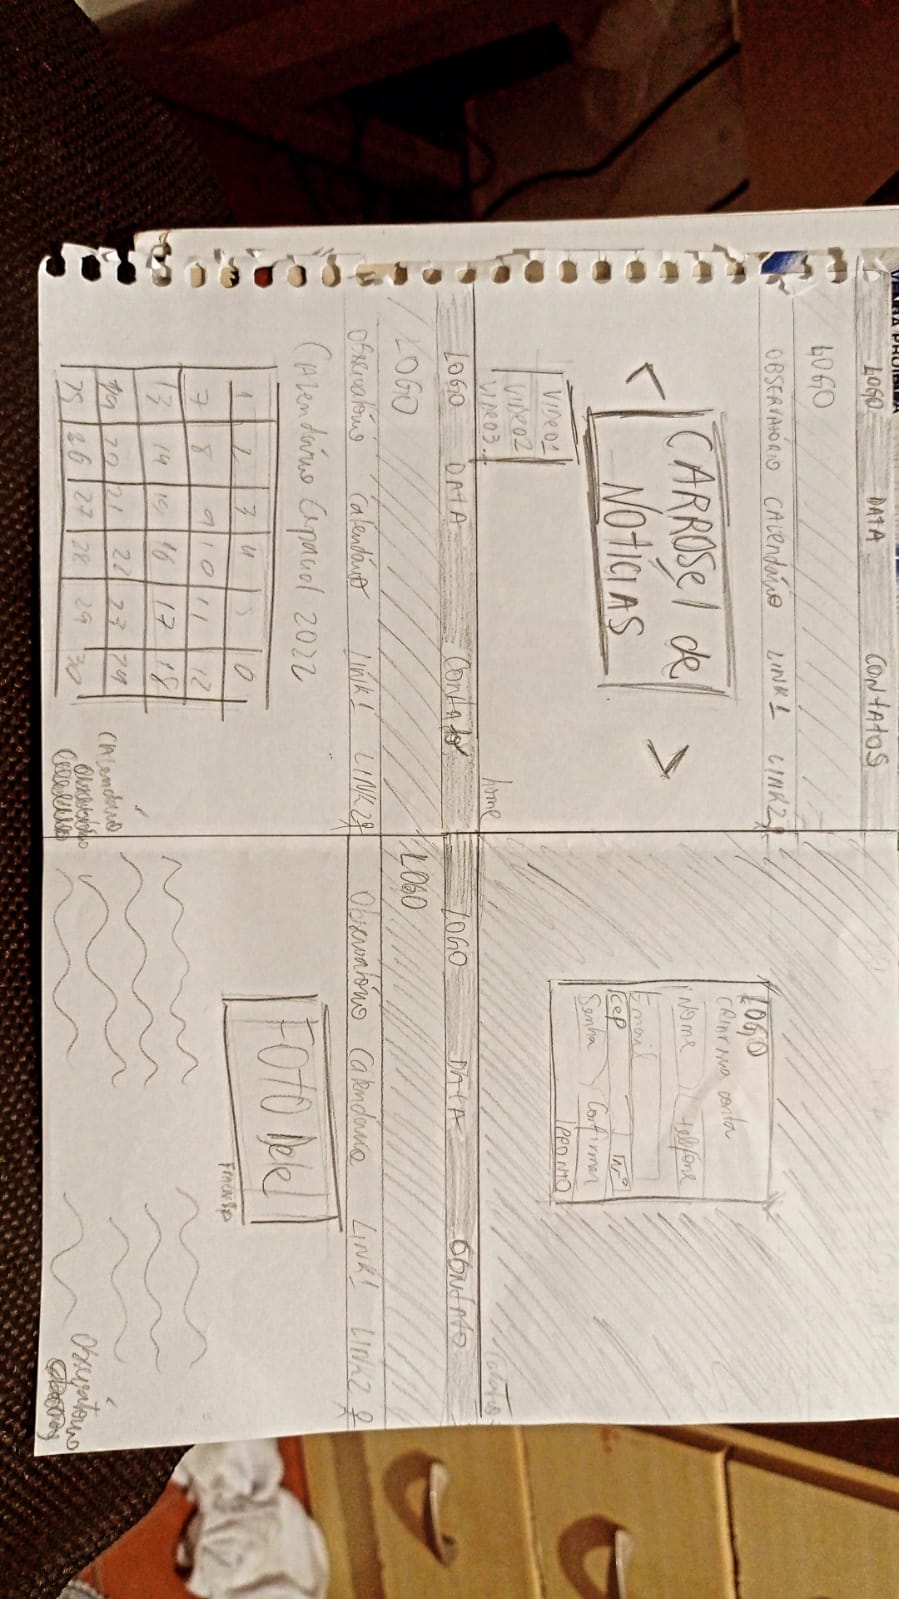 VENDA PROIBIDA
LOGO DATA CONTATOS
LOGO
OBSERVATÓRIO CALENDÁRIO LINK1 LINK2
CARROSEL de
NOTÍCIAS
< >
VIDEO1
VIDEO2
VIDEO3...
home
LOGO
CRIAR sua conta
Nome telefone
Email
CEP Nº
Senha Confirmar
PRONTO
LOGO DATA CONTATO
LOGO
Observatório Calendário LINK1 LINK2
Calendário Espacial 2022
1 2 3 4 5 6
7 8 9 10 11 12
13 14 15 16 17 18
19 20 21 22 23 24
25 26 27 28 29 30
Calendário
LOGO DATA CONTATO
LOGO
Observatório Calendário LINK1 LINK2
FOTO Dele
Observatório